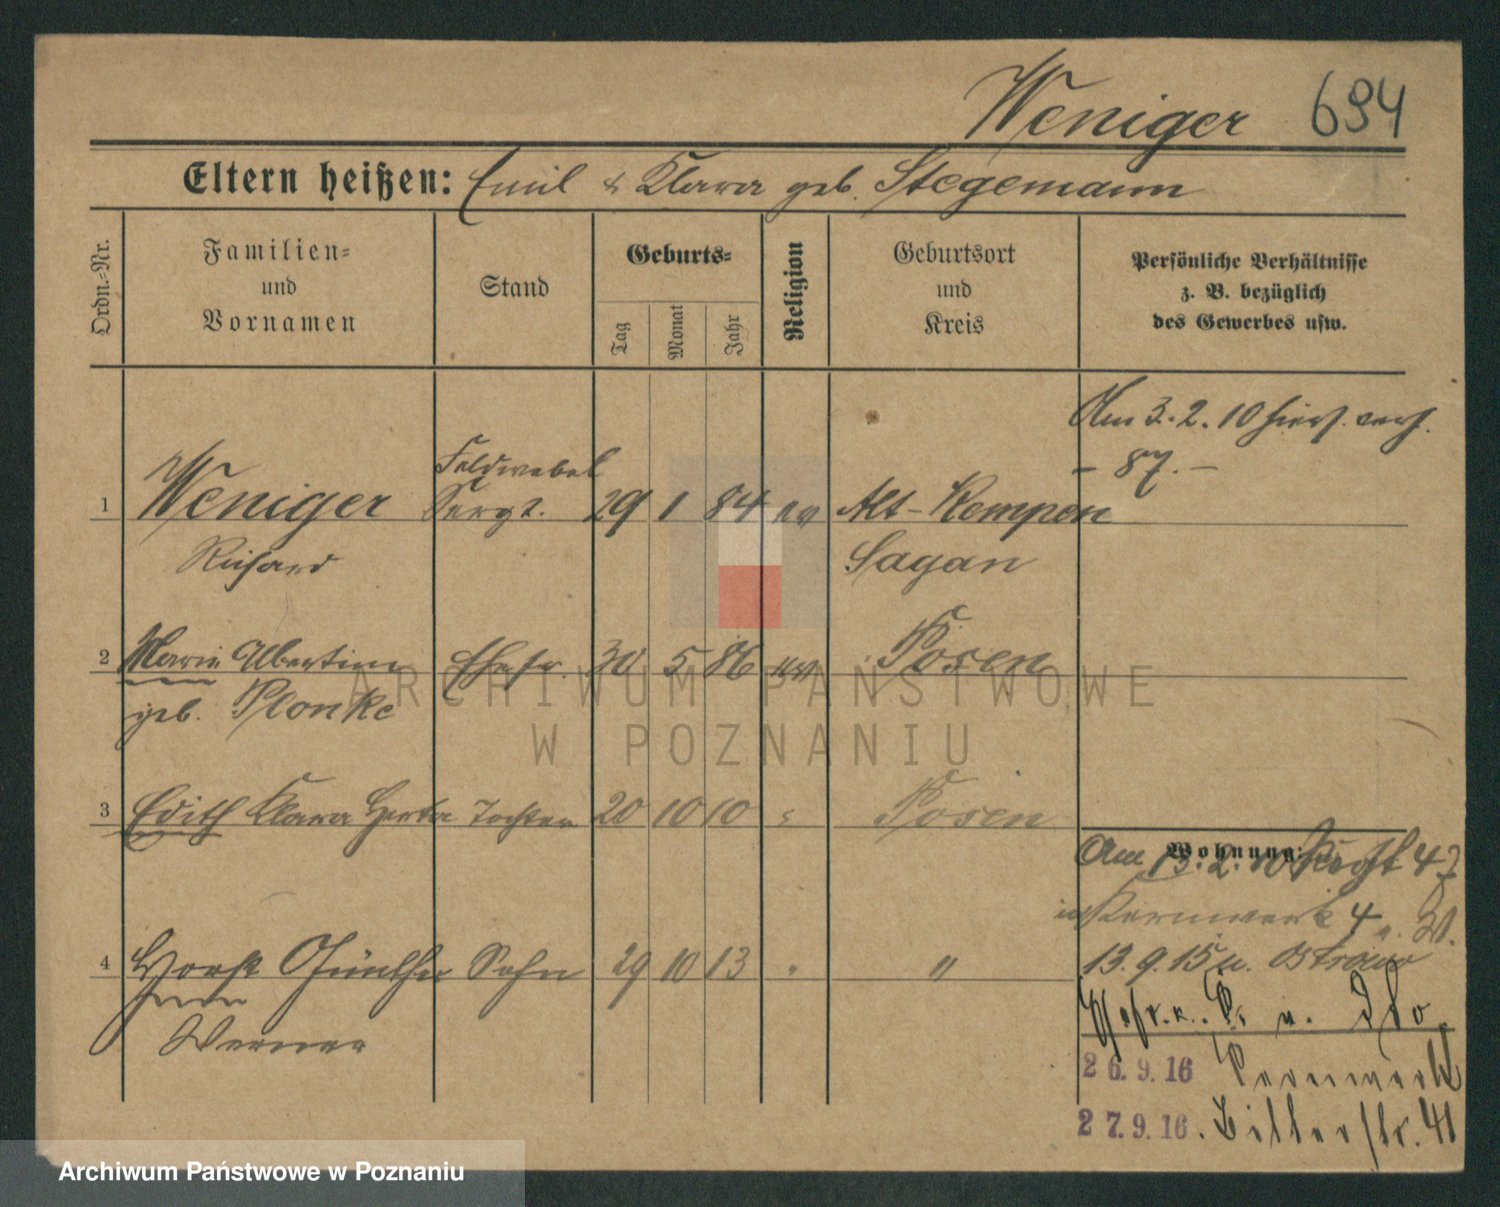 Weniger 694
Eltern heißen: Emil & Klara geb. Stegemann
Ordn.=Nr.
Familien=
und
Vornamen
Stand
Geburts=
Tag
Monat
Jahr
Religion
Geburtsort
und
Kreis
Persönliche Verhältnisse
z. B. bezüglich
des Gewerbes usw.
Am 3. 2. 10 hier verh.
- 87. -
Feldwebel
1 Weniger Sergt. 29 1 84 ev Alt-Kempen
Richard Sagan
2 Marie Albertine Ehefr. 30 5 86 Posen
geb. Plonke
3 Edith Klara Herta Tochter 20 10 10 " Posen
Wohnung:
Am 13. 2. 10 47
Kernwerk 4
4 Horst Günther Sohn 29 10 13 " "
13. 9. 15 u. Ostrowo
Werner
26.9.16 Kernwerk
27.9.16. Bitterstr. 41
ARCHIWUM PAŃSTWOWE
W POZNANIU
Archiwum Państwowe w Poznaniu